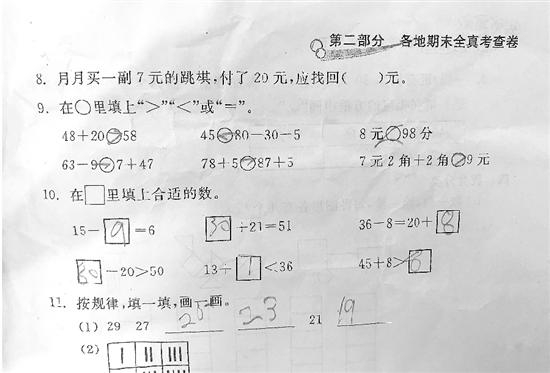 第二部分 各地期末全真考查卷
8. 月月买一副7元的跳棋,付了20元,应找回( )元。
9. 在○里填上“>”“<”或“=”。
48+20 58 45 80-30-5 8元 98分
63-9 7+47 78+5 87+5 7元2角+2角 9元
10. 在□里填上合适的数。
15-9=6 30+21=51 36-8=20+8
80-20>50 13+1<36 45+8>6
11. 按规律,填一填,画一画。
(1) 29 27 25 23 21 19
(2)